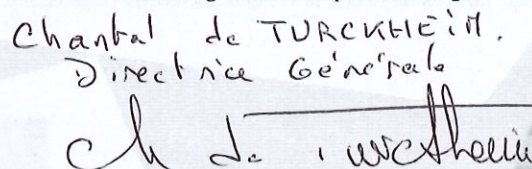 Chantal de TURCKHEIM.
Directrice Générale
Ch de Turckheim